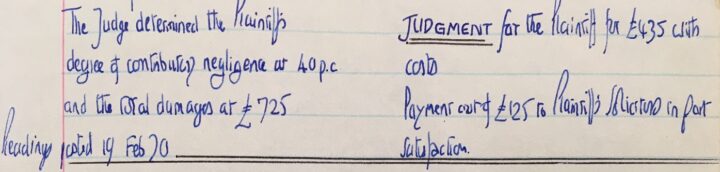 The Judge determined the Plaintiff's
degree of contributory negligence at 40 p.c
and the total damages at £725
Pleadings dated 19 Feb 70
JUDGMENT for the Plaintiff for £435 with
costs
Payment out of £125 to Plaintiff's Solicitors in part
satisfaction.